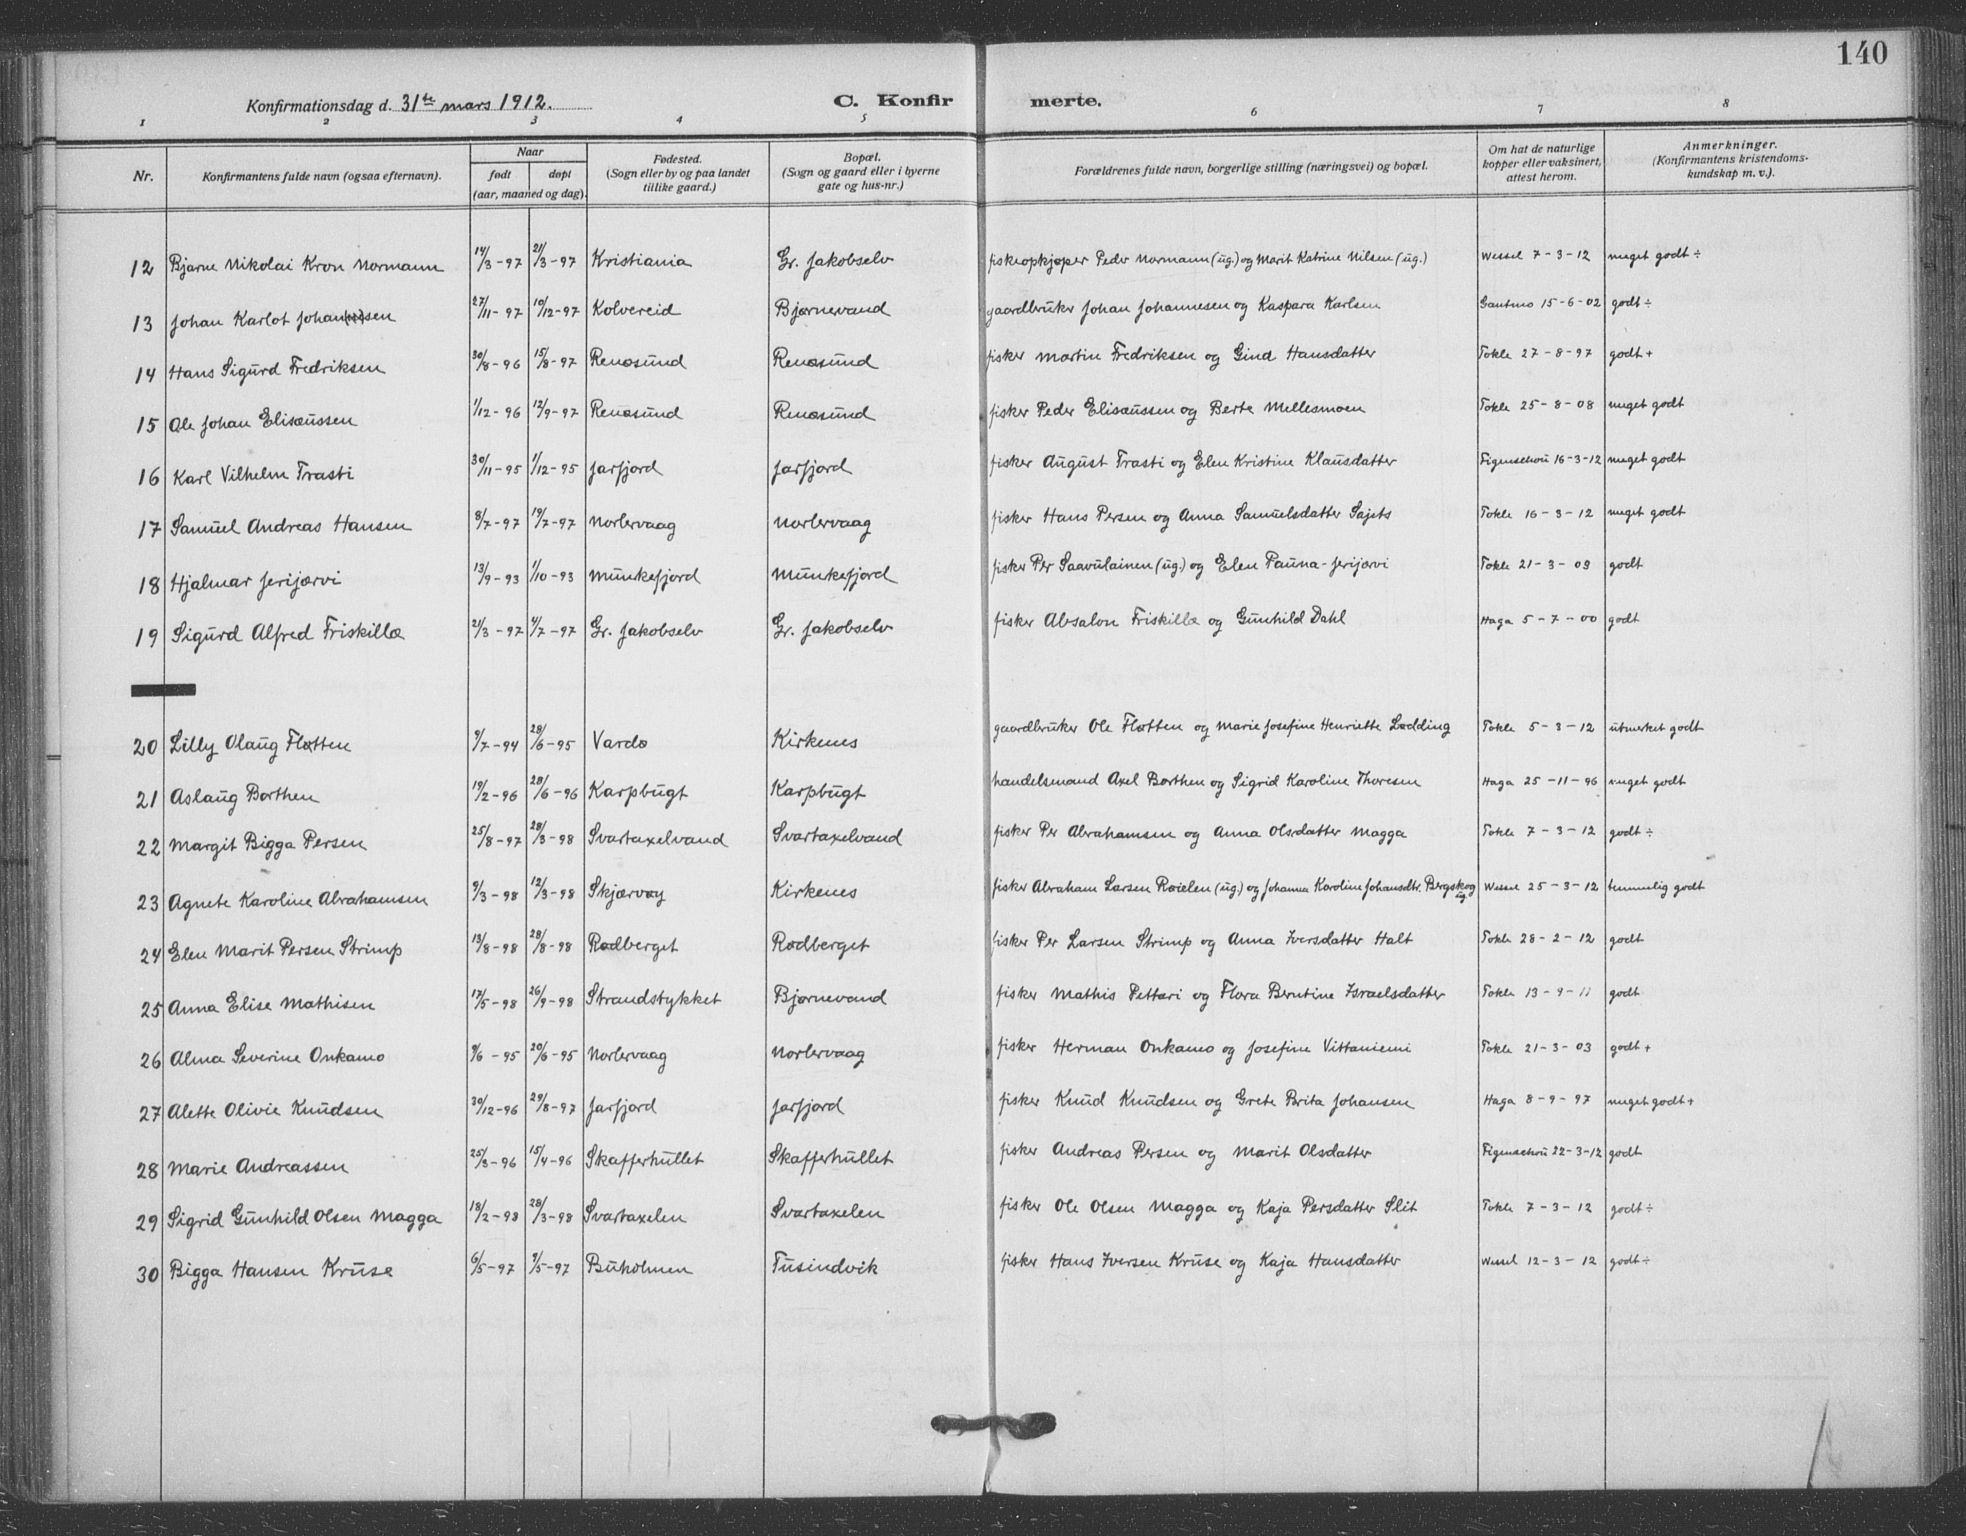 140
Konfirmationsdag d. 31te mars 1912. C. Konfir merte.
1 2 3 4 5 6 7 8
Nr. Konfirmantens fulde navn (ogsaa efternavn). Naar født døpt (aar, maaned og dag). Fødested. (Sogn eller by og paa landet tillike gaard.) Bopæl. (Sogn og gaard eller i byerne gate og hus-nr.) Forældrenes fulde navn, borgerlige stilling (næringsvei) og bopæl. Om hat de naturlige kopper eller vaksinert, attest herom. Anmerkninger. (Konfirmantens kristendomskundskap m. v.).
12 Bjarne Nikolai Kron Normann 14/3-97 21/3-97 Kristiania Gr. Jakobselv fiskeopkjøper Peder Normann (ug.) og Marit Katrine Nilsen (ug.) Wessel 7-3-12 meget godt ÷
13 Johan Karlot Johan(ne)sen 27/11-97 10/12-97 Kolvereid Bjørnevand gaardbruker Johan Johannesen og Kaspara Karlsen 15-6-02 godt ÷
14 Hans Sigurd Fredriksen 30/8-96 15/8-97 Renøsund Renøsund fisker Martin Fredriksen og Gind Hansdatter Tokle 27-8-97 godt +
15 Ole Johan Elisæussen 1/12-96 12/9-97 Renøsund Renøsund fisker Peder Elisæussen og Berte Mellesmoen Tokle 25-8-08 meget godt
16 Karl Vilhelm Trasti 30/11-95 1/12-95 Jarfjord Jarfjord fisker August Trasti og Elen Kristine Klausdatter Figenschou 16-3-12 meget godt
17 Samuel Andreas Hansen 8/7-97 19/7-97 Norlervaag Norlervaag fisker Hans Persen og Anna Samuelsdatter Sajets Tokle 16-3-12 meget godt
18 Hjalmar Jerijærvi 13/9-93 1/10-93 Munkefjord Munkefjord fisker Per Saavulainen (ug.) og Elen Pauna-Jerijærvi Tokle 21-3-09 godt
19 Sigurd Alfred Friskillæ 21/3-97 4/7-97 Gr. Jakobselv Gr. Jakobselv fisker Absalon Friskillæ og Gunhild Dahl Haga 5-7-00 godt
20 Lilly Olaug Fløtten 9/7-94 28/6-95 Vardø Kirkenes gaardbruker Ole Fløtten og Marie Josefine Henriette Lødding Tokle 5-3-12 utmerket godt
21 Aslaug Borthen 19/2-96 28/6-96 Karpbugt Karpbugt handelsmand Axel Borthen og Sigrid Karoline Thoresen Haga 25-11-96 meget godt
22 Margit Bigga Persen 25/8-97 28/3-98 Svartaxelvand Svartaxelvand fisker Per Abrahamsen og Anna Olsdatter Magga Tokle 7-3-12 godt ÷
23 Agnete Karoline Abrahamsen 9/3-98 12/3-98 Skjærvøy Kirkenes fisker Abraham Larsen Røielen (ug.) og Johanna Karoline Johansdtr. Bergskog ug. Wessel 25-3-12 temmelig godt
24 Elen Marit Persen Strimp 13/8-98 28/8-98 Rødberget Rødberget fisker Per Larsen Strimp og Anna Iversdatter Halt Tokle 28-2-12 godt
25 Anna Elise Mathisen 17/5-98 26/9-98 Strandstykket Bjørnevand fisker Mathis Pettari og Flora Berntine Israelsdatter Tokle 13-9-11 godt
26 Alma Severine Onkamo 9/6-95 20/6-95 Norlervaag Norlervaag fisker Herman Onkamo og Josefine Vittaniemi Tokle 21-3-03 godt +
27 Alette Olivie Knudsen 30/12-96 29/8-97 Jarfjord Jarfjord fisker Knud Knudsen og Grete Brita Johansen Haga 8-9-97 meget godt +
28 Marie Andreassen 25/3-96 15/4-96 Skafferhullet Skafferhullet fisker Andreas Persen og Marit Olsdatter Figenschou 22-3-12 godt
29 Sigrid Gunhild Olsen Magga 18/2-98 28/3-98 Svartaxelen Svartaxelen fisker Ole Olsen Magga og Kaja Persdatter Slit Tokle 7-3-12 godt ÷
30 Bigga Hansen Kruse 6/5-97 9/5-97 Buholmen Tusindvik fisker Hans Iversen Kruse og Kaja Hansdatter Wessel 12-3-12 godt ÷